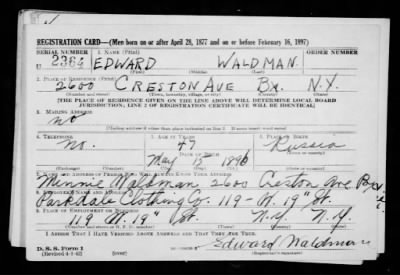 REGISTRATION CARD—(Men born on or after April 28, 1877 and on or before February 16, 1897)
SERIAL NUMBER 1. NAME (Print) ORDER NUMBER
U 2364 EDWARD WALDMAN
(First) (Middle) (Last)
2. PLACE OF RESIDENCE (Print)
2600 CRESTON AVE BX. N.Y.
(Number and street) (Town, township, village, or city) (County) (State)
[THE PLACE OF RESIDENCE GIVEN ON THE LINE ABOVE WILL DETERMINE LOCAL BOARD
JURISDICTION; LINE 2 OF REGISTRATION CERTIFICATE WILL BE IDENTICAL]
3. MAILING ADDRESS
no
4. TELEPHONE 5. AGE IN YEARS 6. PLACE OF BIRTH
no. 47 Russia
DATE OF BIRTH
May 15 1896
7. NAME AND ADDRESS OF PERSON WHO WILL ALWAYS KNOW YOUR ADDRESS
Minnie Waldman 2600 Creston Ave Bx
8. EMPLOYER'S NAME AND ADDRESS
Parkdale Clothing Co. 119 - W. 19" St.
9. PLACE OF EMPLOYMENT OR BUSINESS
119 W. 19" St. N.Y. N.Y.
I AFFIRM THAT I HAVE VERIFIED ABOVE ANSWERS AND THAT THEY ARE TRUE.
D. S. S. Form 1
(Revised 4-1-42) Edward Waldman